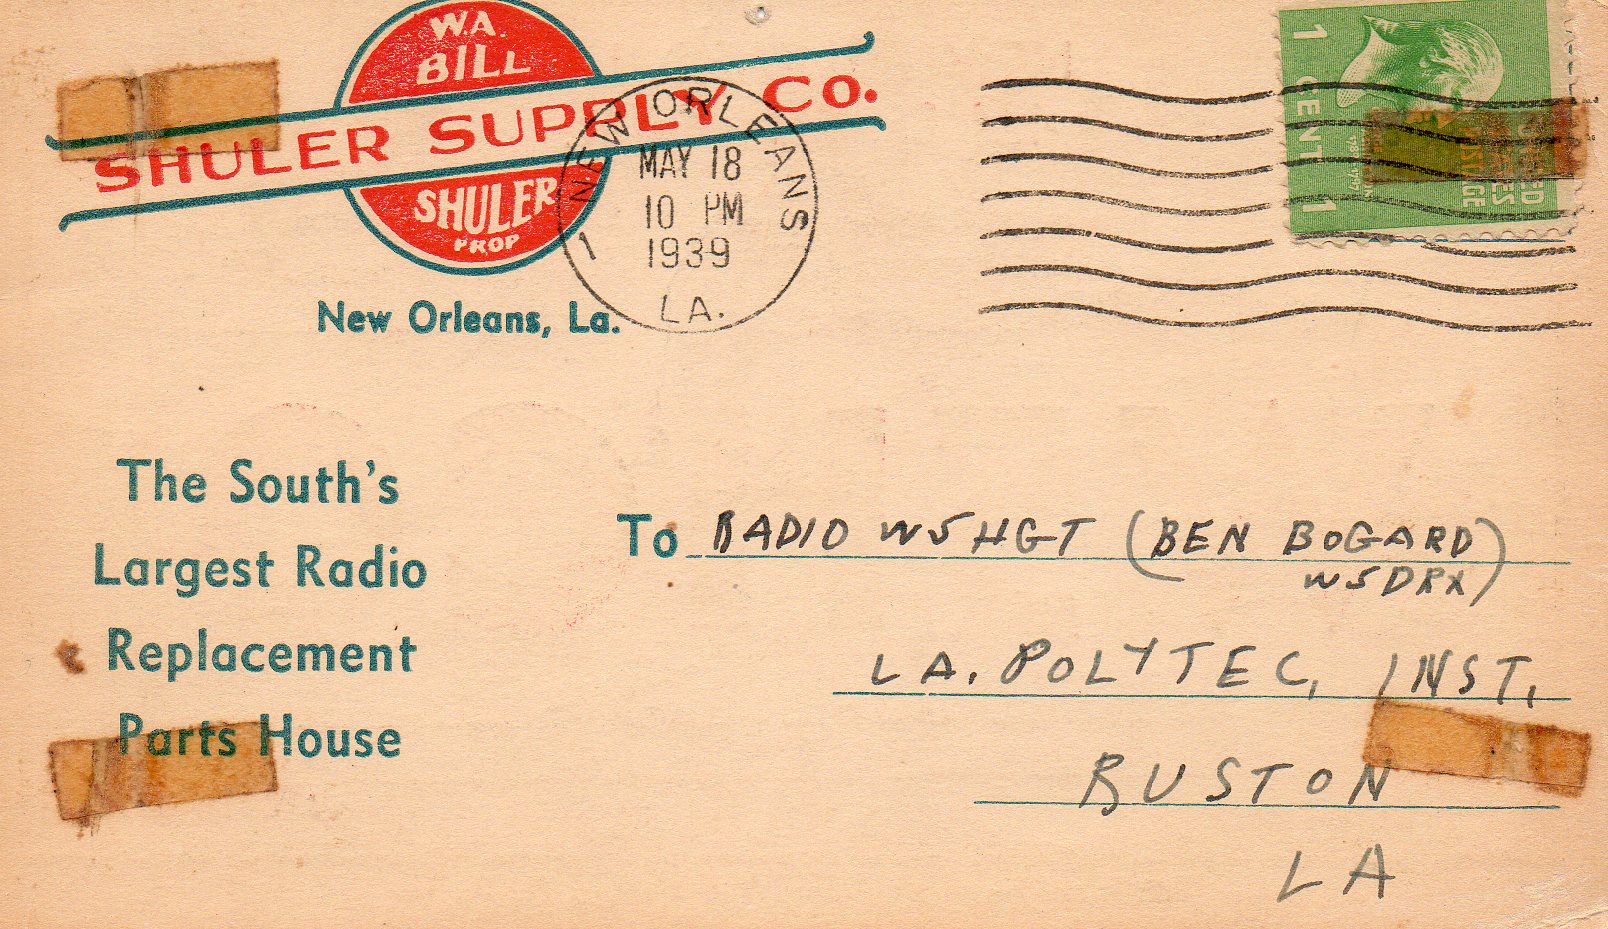 W.A.
BILL
SHULER SUPPLY Co.
SHULER
PROP
New Orleans, La.
NEW ORLEANS 1
MAY 18
10 PM
1939
LA.
1 CENT 1
The South's
Largest Radio
Replacement
Parts House
To RADIO W5HGT (BEN BOGARD
W5DRX)
LA. POLYTEC, INST,
RUSTON
LA